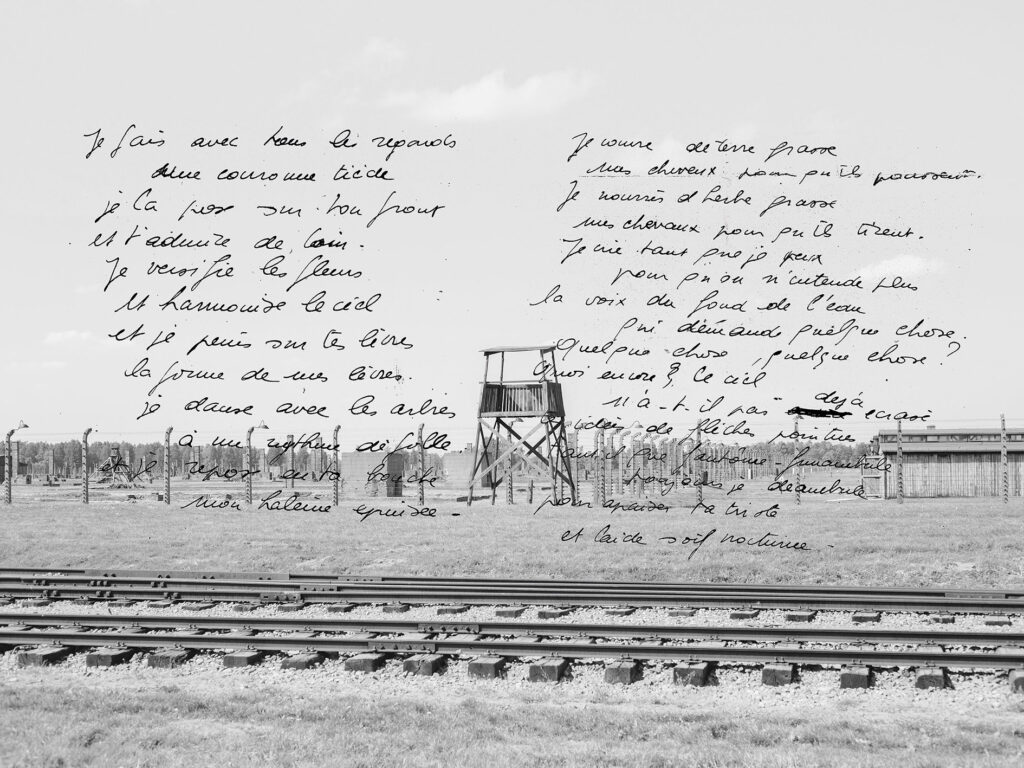 Je fais avec tous les regards
une couronne tiède
je la pose sur ton front
et t'admire de loin.
Je versifie les fleurs
et harmonise le ciel
et je peins sur tes lèvres
la forme de mes lèvres.
je danse avec les arbres
à un rythme de folle
et je repose en ta bouche
mon haleine épuisée.
Je couvre de terre grasse
mes cheveux pour qu'ils poussent.
Je nourris d'herbe grasse
mes chevaux pour qu'ils tirent.
Je tant que je peux
pour qu'on n'entende plus
la voix du fond de l'eau
qui demande quelque chose.
Quelque chose, quelque chose ?
Quoi encore ? Ce ciel
n'a-t-il pas déjà écrasé
idées de flèches pointues
Faut-il que fantôme-funambule
toujours je déambule
pour apaiser ta triste
et laide soif nocturne.